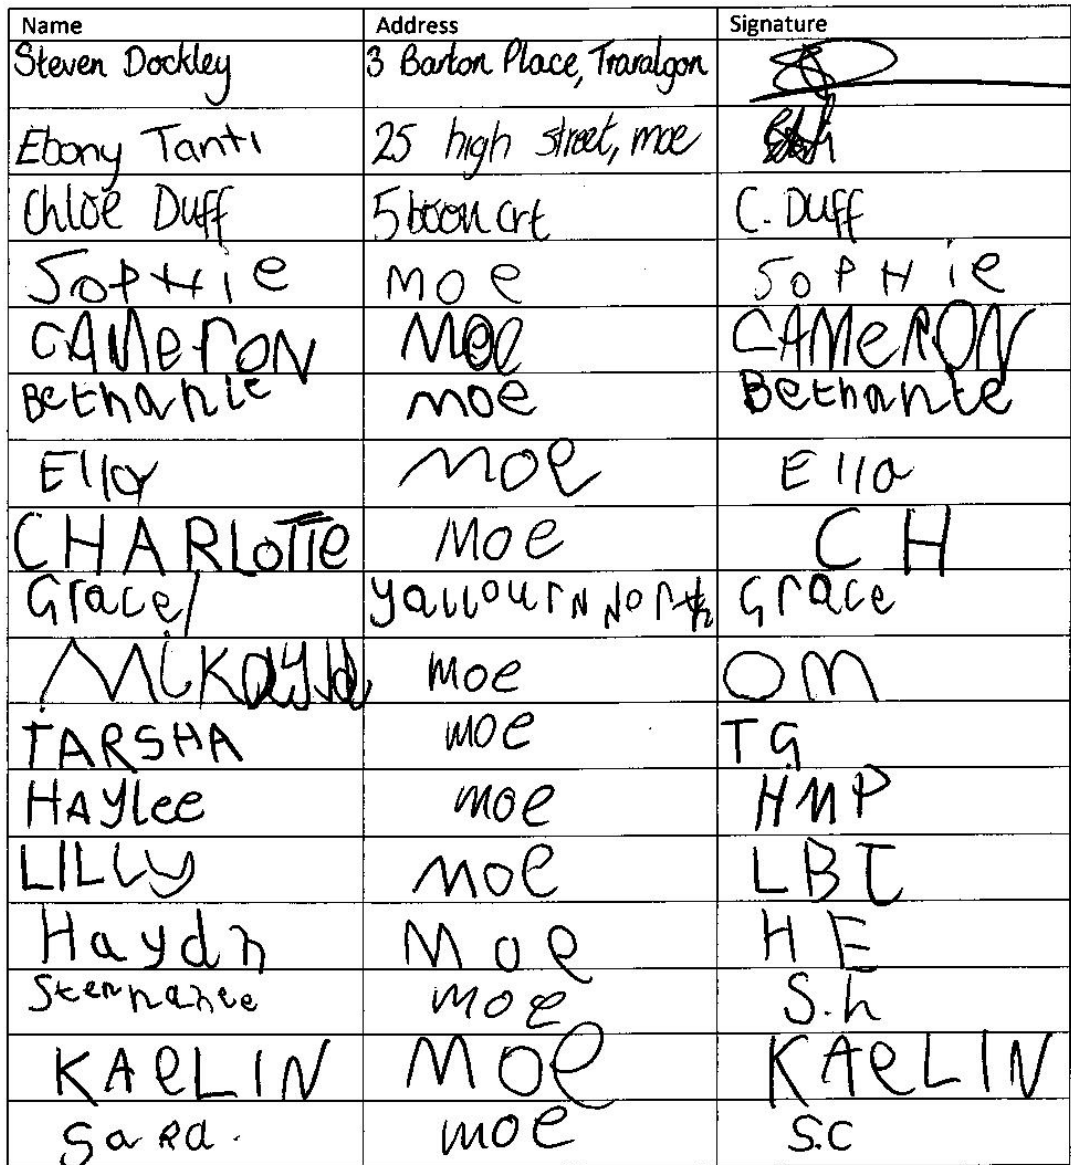 Name Address Signature
Steven Dockley 3 Barton Place, Traralgon
Ebony Tanti 25 high street, moe
Chloe Duff 5 boon crt C. Duff
SOPHie MOe SOPHie
CAMerON Moe CAMeRON
Bethanie moe Bethanie
Ella moe Ella
CHARLOTTe Moe CH
Grace yallourN North Grace
Mikayla moe OM
TARSHA moe TG
HAYlee moe HMP
LILLy Moe LBT
Haydn Moe HE
moe S.h
KAeLIN Moe KAeLIN
SaRa. moe S.C